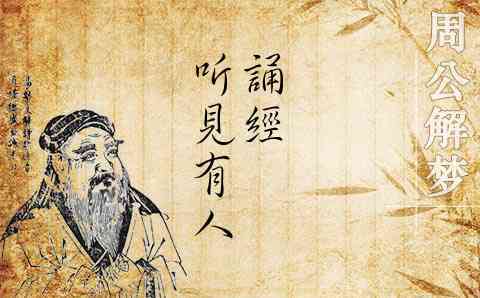 周公解梦
誦經
听見有人